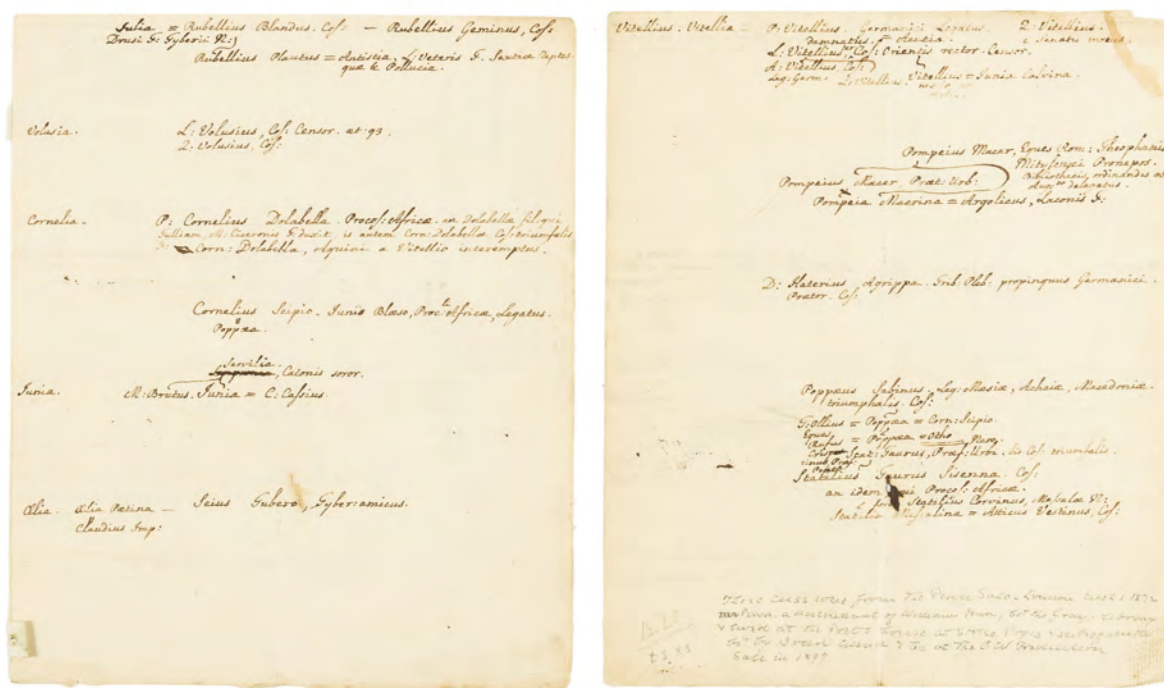 Julia = Rubellius Blandus. Cos: — Rubellius Geminus, Cos:
Drusi F: Tyberii N:)
Rubellius Plautus = Antistia, L: Veteris F. Sextiæ Neptis
quæ & Pollutia.
Volusia. L: Volusius, Cos: Censor. æt: 93.
Q: Volusius, Cos:
Cornelia. P: Cornelius Dolabella. Procos: Africæ. an Dolabellæ fil: qui
Tulliam, M: Ciceronis F: duxit, is autem Corn: Dolabellæ, Cos: triumfalis
F:
Corn: Dolabella, Aquini a Vitellio interemptus.
Cornelius Scipio. Junio Blæso, Proc: Africæ, Legatus.
Poppæa.
Servilia, Catonis soror.
Junia. M: Brutus. Junia = C: Cassius.
Ælia. Ælia Pætina — Seius Tubero, Tyber: amicus.
Claudius Imp:
Vitellius. Vitellia — P: Vitellius. Germanici Legatus. Q: Vitellius.
damnatus = Acutia. e Senatu motus.
L: Vitellius, Cos: Orientis rector. Censor.
A: Vitellius, Cos:
Leg: Germ: L: Vitellius. Vitellius = Junia Calvina.
Pompeius Macer, Eques Rom: Theophanis
Mitylenæi Pronepos.
Bibliothecis, ordinandis ab
Augto delegatus.
Pompeius Macer, Præt: Urb:
Pompeia Macrina = Argolicus, Laconis F:
D: Haterius Agrippa. Trib: Pleb: propinquus Germanici.
Prætor. Cos:
Poppæus Sabinus, Leg: Mæsiæ, Achaiæ, Macedoniæ.
triumphalis. Cos:
T: Ollius = Poppæa = Corn: Scipio.
Eques
Rufus = Poppæa = Otho Nero.
Crispinus Præf:
Stat: Taurus, Præf: Urbi. bis Cos: triumfalis.
Statilius Taurus Sisenna. Cos:
an idem qui Procos: Africæ.
Statilius Corvinus, Messalæ N:
Statilia Messalina = Atticus Vestinus, Cos:
These Mss were from the Penn Sale London 1872
Mr Penn, a descendant of William Penn,
Gray
lived at the
Sale in 1897